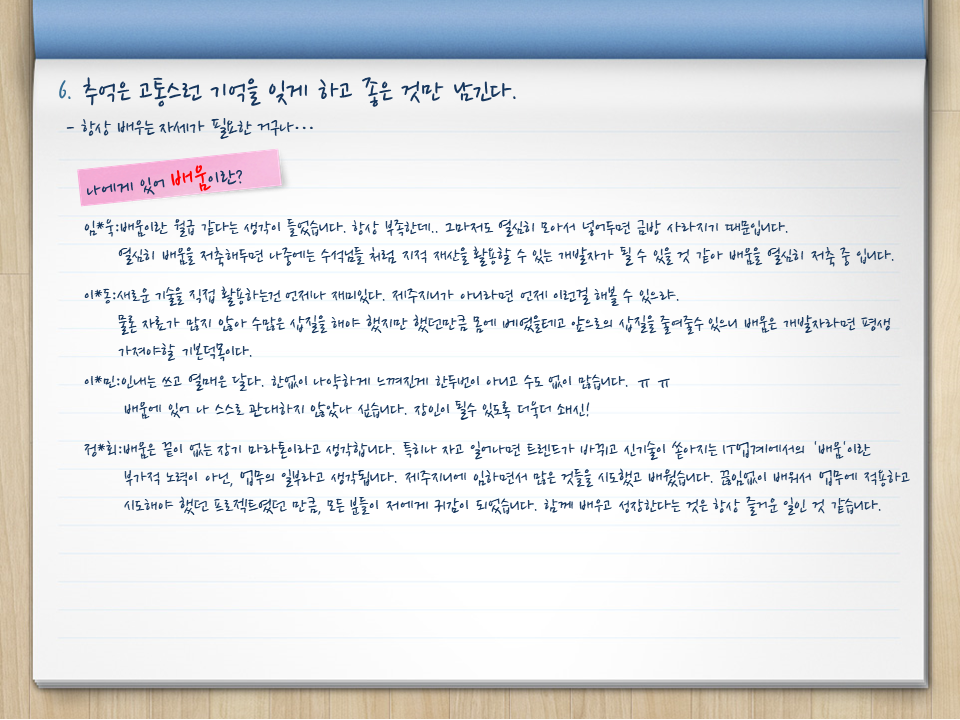 6. 추억은 고통스런 기억을 잊게 하고 좋은 것만 남긴다.
- 항상 배우는 자세가 필요한 거구나...
나에게 있어 배움이란?
임*욱:배움이란 월급 같다는 생각이 들었습니다. 항상 부족한데.. 그마저도 열심히 모아서 넣어두면 금방 사라지기 때문입니다.
열심히 배움을 저축해두면 나중에는 수석님들 처럼 지적 재산을 활용할 수 있는 개발자가 될 수 있을 것 같아 배움을 열심히 저축 중 입니다.
이*동:새로운 기술을 직접 활용하는건 언제나 재미있다. 제주지니가 아니라면 언제 이런걸 해볼 수 있으랴.
물론 자료가 많지 않아 수많은 삽질을 해야 했지만 했던만큼 몸에 베였을테고 앞으로의 삽질을 줄여줄수 있으니 배움은 개발자라면 평생
가져야할 기본덕목이다.
이*민:인내는 쓰고 열매은 달다. 한없이 나약하게 느껴진게 한두번이 아니고 수도 없이 많습니다. ㅠ ㅠ
배움에 있어 나 스스로 관대하지 않았나 싶습니다. 장인이 될수 있도록 더욱더 쇄신!
정*희:배움은 끝이 없는 장기 마라톤이라고 생각합니다. 특히나 자고 일어나면 트렌드가 바뀌고 신기술이 쏟아지는 IT업계에서의 '배움'이란
부가적 노력이 아닌, 업무의 일부라고 생각됩니다. 제주지니에 임하면서 많은 것들을 시도했고 배웠습니다. 끊임없이 배워서 업무에 적용하고
시도해야 했던 프로젝트였던 만큼, 모든 분들이 저에게 귀감이 되었습니다. 함께 배우고 성장한다는 것은 항상 즐거운 일인 것 같습니다.